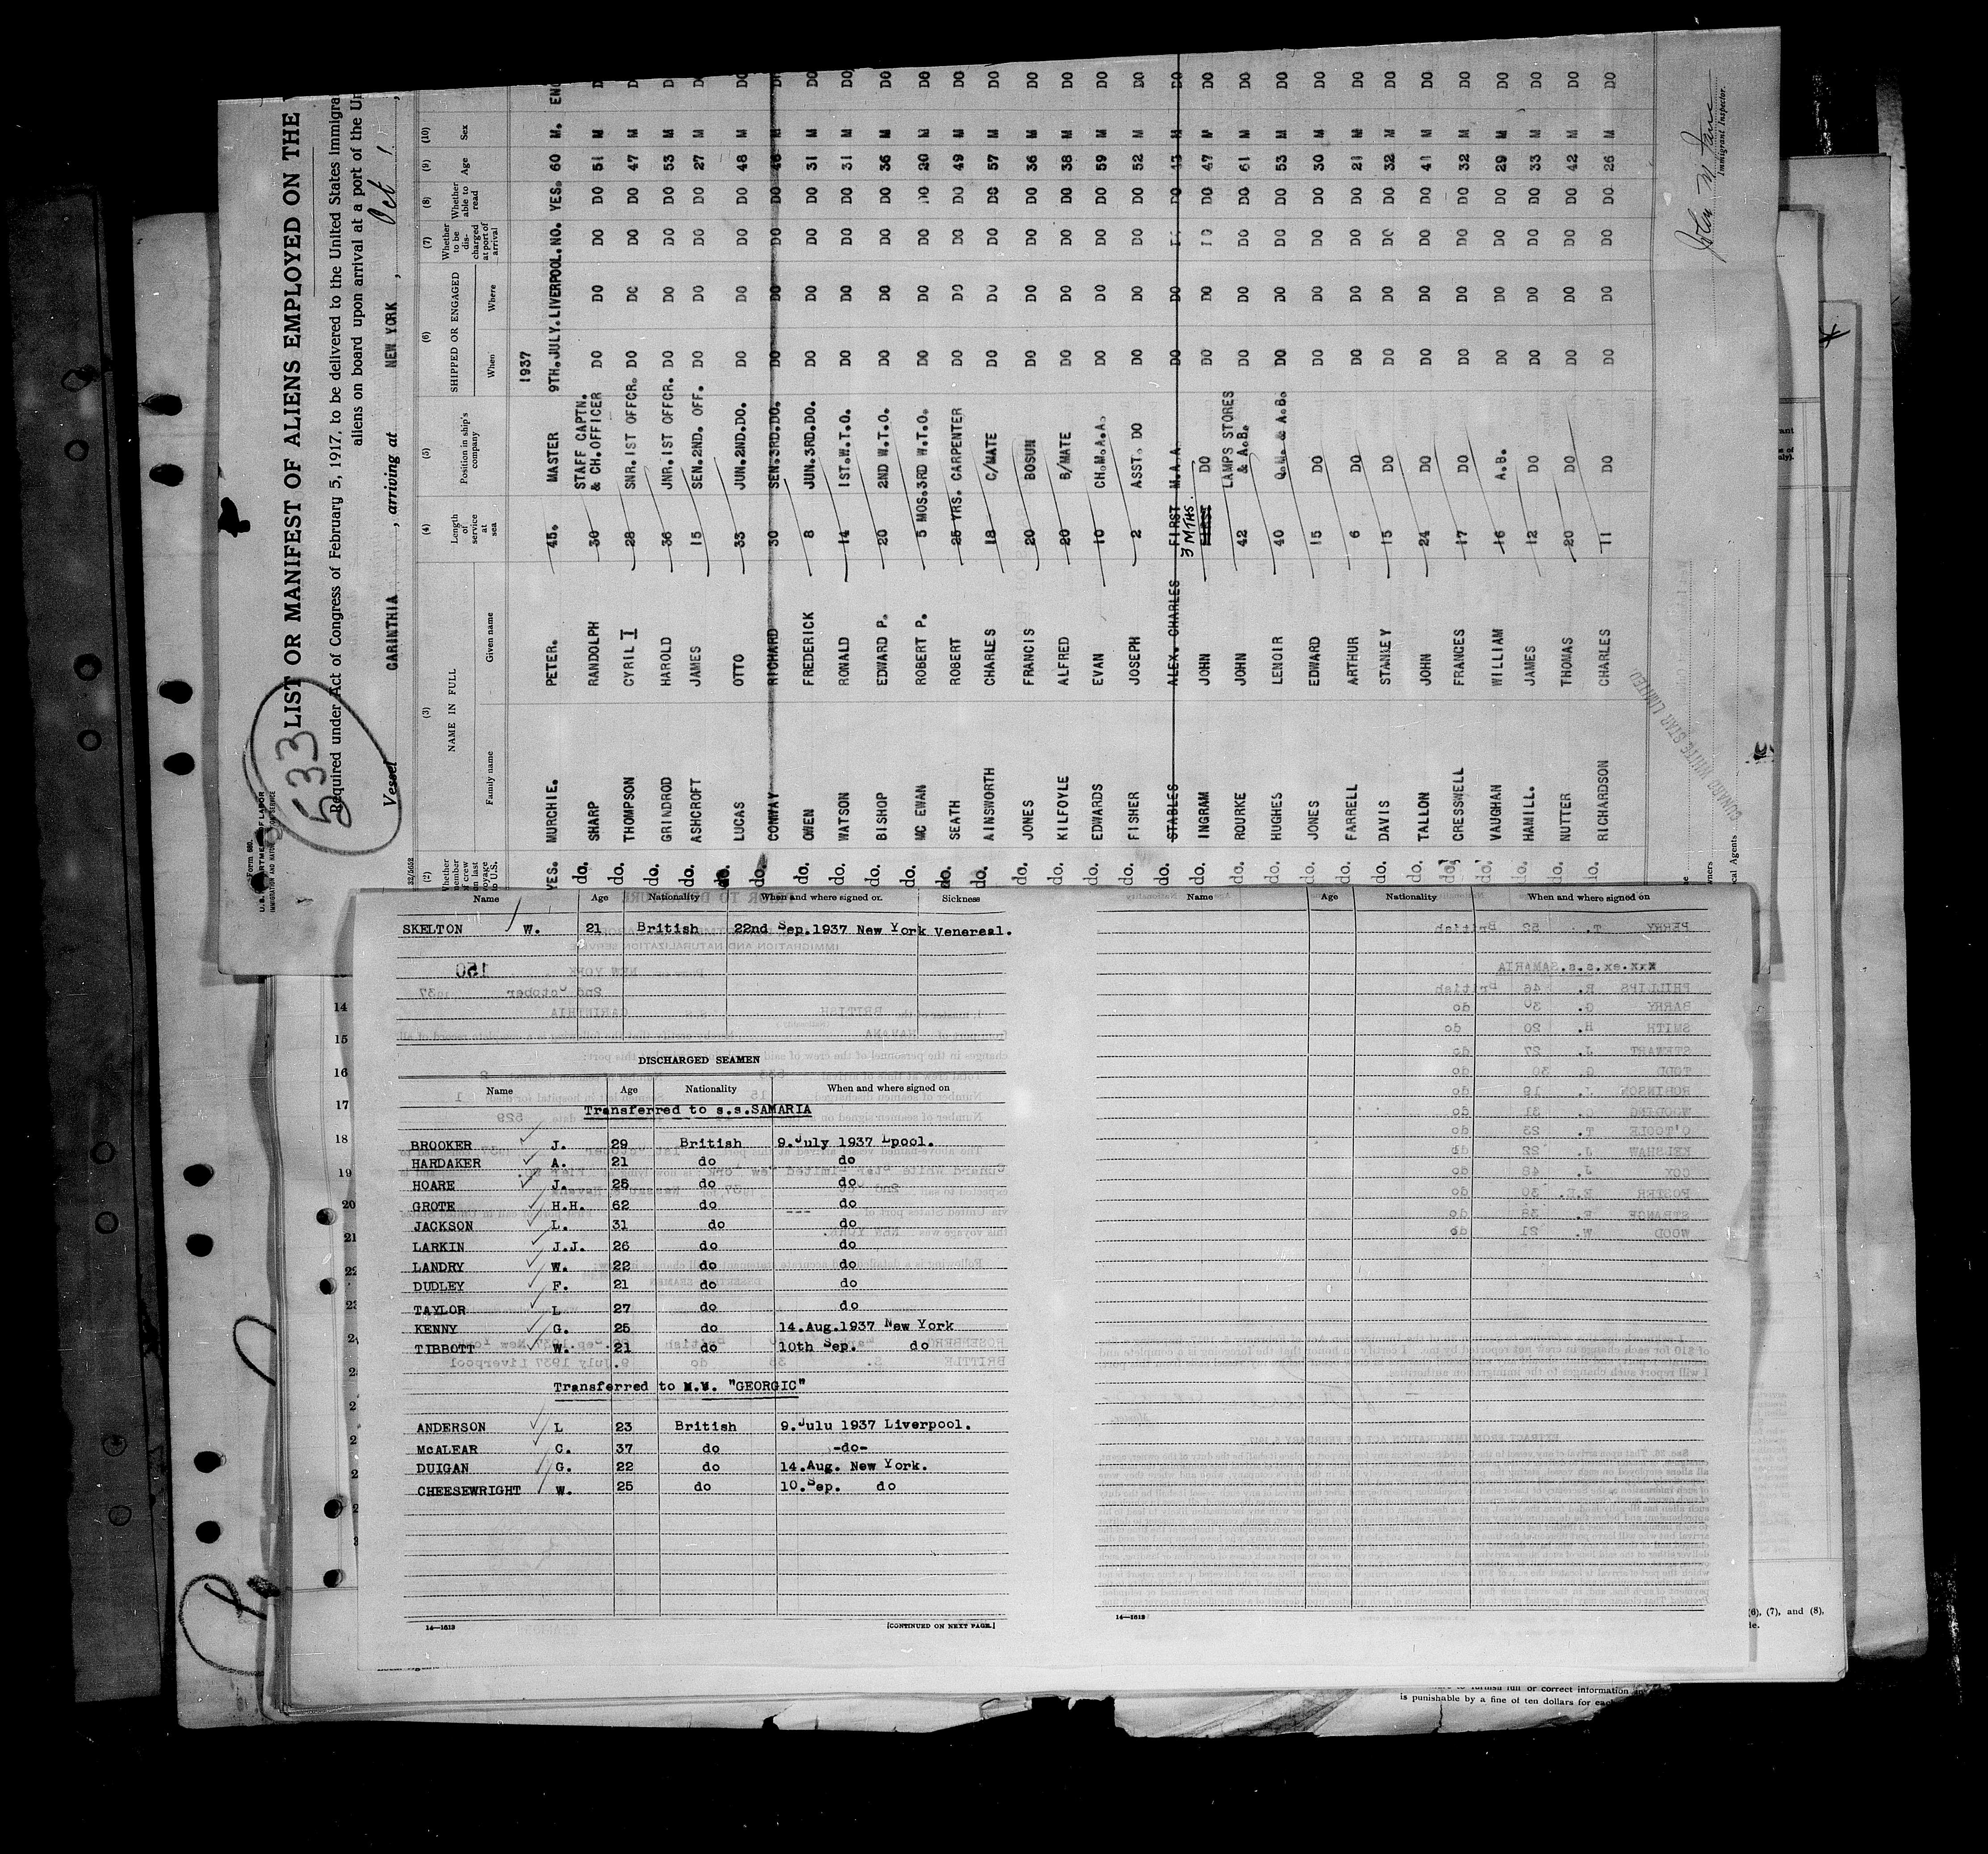 Form 680.
U. S. DEPARTMENT OF LABOR
IMMIGRATION AND NATURALIZATION SERVICE
533
LIST OR MANIFEST OF ALIENS EMPLOYED ON THE
Required under Act of Congress of February 5, 1917, to be delivered to the United States Immigra
aliens on board upon arrival at a port of the Un
Vessel CARINTHIA , arriving at NEW YORK , Oct 1 ,
32/5652
(2) (3) (4) (5) (6) (7) (8) (9) (10)
Whether member of crew on last voyage to U.S. NAME IN FULL Family name Given name Length of service at sea Position in ship's company SHIPPED OR ENGAGED When Where Whether to be discharged at port of arrival Whether able to read Age Sex
1937
YES. MURCHIE. PETER. 45. MASTER 9TH.JULY. LIVERPOOL. NO. YES. 60 M. ENG
do. SHARP RANDOLPH 30 STAFF CAPTN. & CH.OFFICER DO DO DO DO 51 M D
do. THOMPSON CYRIL I 28 SNR.1ST OFFCR. DO DO DO DO 47 M D
do. GRINDROD HAROLD 36 JNR.1ST OFFCR. DO DO DO DO 53 M D
do. ASHCROFT JAMES 15 SEN.2ND. OFF. DO DO DO DO 27 M D
do. LUCAS OTTO 33 JUN.2ND.DO. DO DO DO DO 48 M DO
do. CONWAY RICHARD 30 SEN.3RD.DO. DO DO DO DO 46 M DO
do. OWEN FREDERICK 8 JUN.3RD.DO. DO DO DO DO 31 M DO
do. WATSON RONALD 14 1ST.W.T.O. DO DO DO DO 31 M DO
do. BISHOP EDWARD P. 20 2ND W.T.O. DO DO DO DO 36 M DO
do. MC EWAN ROBERT P. 5 MOS. 3RD W.T.O. DO DO DO DO 20 M DO
do. SEATH ROBERT 25 YRS. CARPENTER DO DO DO DO 49 M DO
do. AINSWORTH CHARLES 18 C/MATE DO DO DO DO 57 M DO
do. JONES FRANCIS 20 BOSUN DO DO DO DO 36 M DO
do. KILFOYLE ALFRED 20 B/MATE DO DO DO DO 38 M DO
do. EDWARDS EVAN 10 CH.M.A.A. DO DO DO DO 59 M DO
do. FISHER JOSEPH 2 ASST. DO DO DO DO DO 52 M DO
do. STABLES ALEX. CHARLES FIRST M.A.A. DO DO DO 43 M DO
do. INGRAM JOHN FIRST 3 MTHS. DO DO DO DO DO 47 M DO
do. ROURKE JOHN 42 LAMPS STORES & A.B. DO DO DO DO 61 M DO
do. HUGHES LENOIR 40 Q.M. & A.B. DO DO DO DO 53 M DO
do. JONES EDWARD 15 DO DO DO DO DO 30 M DO
do. FARRELL ARTHUR 6 DO DO DO DO DO 21 M DO
do. DAVIS STANLEY 15 DO DO DO DO DO 32 M DO
do. TALLON JOHN 24 DO DO DO DO DO 41 M DO
do. CRESSWELL FRANCES 17 DO DO DO DO DO 32 M DO
do. VAUGHAN WILLIAM 16 A.B. DO DO DO DO 29 M DO
do. HAMILL. JAMES 12 DO DO DO DO DO 33 M DO
lo. NUTTER THOMAS 20 DO DO DO DO DO 42 M DO
lo. RICHARDSON CHARLES 11 DO DO DO DO DO 26 M DO
CUNARD WHITE STAR LIMITED
Immigrant Inspector.
Name Age Nationality When and where signed on Sickness
SKELTON W. 21 British 22nd Sep.1937 New York Venereal.
DISCHARGED SEAMEN
Name Age Nationality When and where signed on
Transferred to s.s.SAMARIA
BROOKER J. 29 British 9.July 1937 Lpool.
HARDAKER A. 21 do do
HOARE J. 25 do do
GROTE H.H. 62 do do
JACKSON L. 31 do do
LARKIN J.J. 26 do do
LANDRY W. 22 do do
DUDLEY F. 21 do do
TAYLOR L 27 do do
KENNY G. 25 do 14.Aug.1937 New York
TIBBOTT W. 21 do 10th Sep. do
Transferred to M.V. "GEORGIC"
ANDERSON L 23 British 9.Julu 1937 Liverpool.
McALEAR C. 37 do -do-
DUIGAN G. 22 do 14.Aug. New York.
CHEESEWRIGHT W. 25 do 10.Sep. do
14—1613 [CONTINUED ON NEXT PAGE.]
Name Age Nationality When and where signed on
14—1613
14
15
16
17
18
19
20
21
22
(6), (7), and (8),
to furnish full or correct information
is punishable by a fine of ten dollars for each